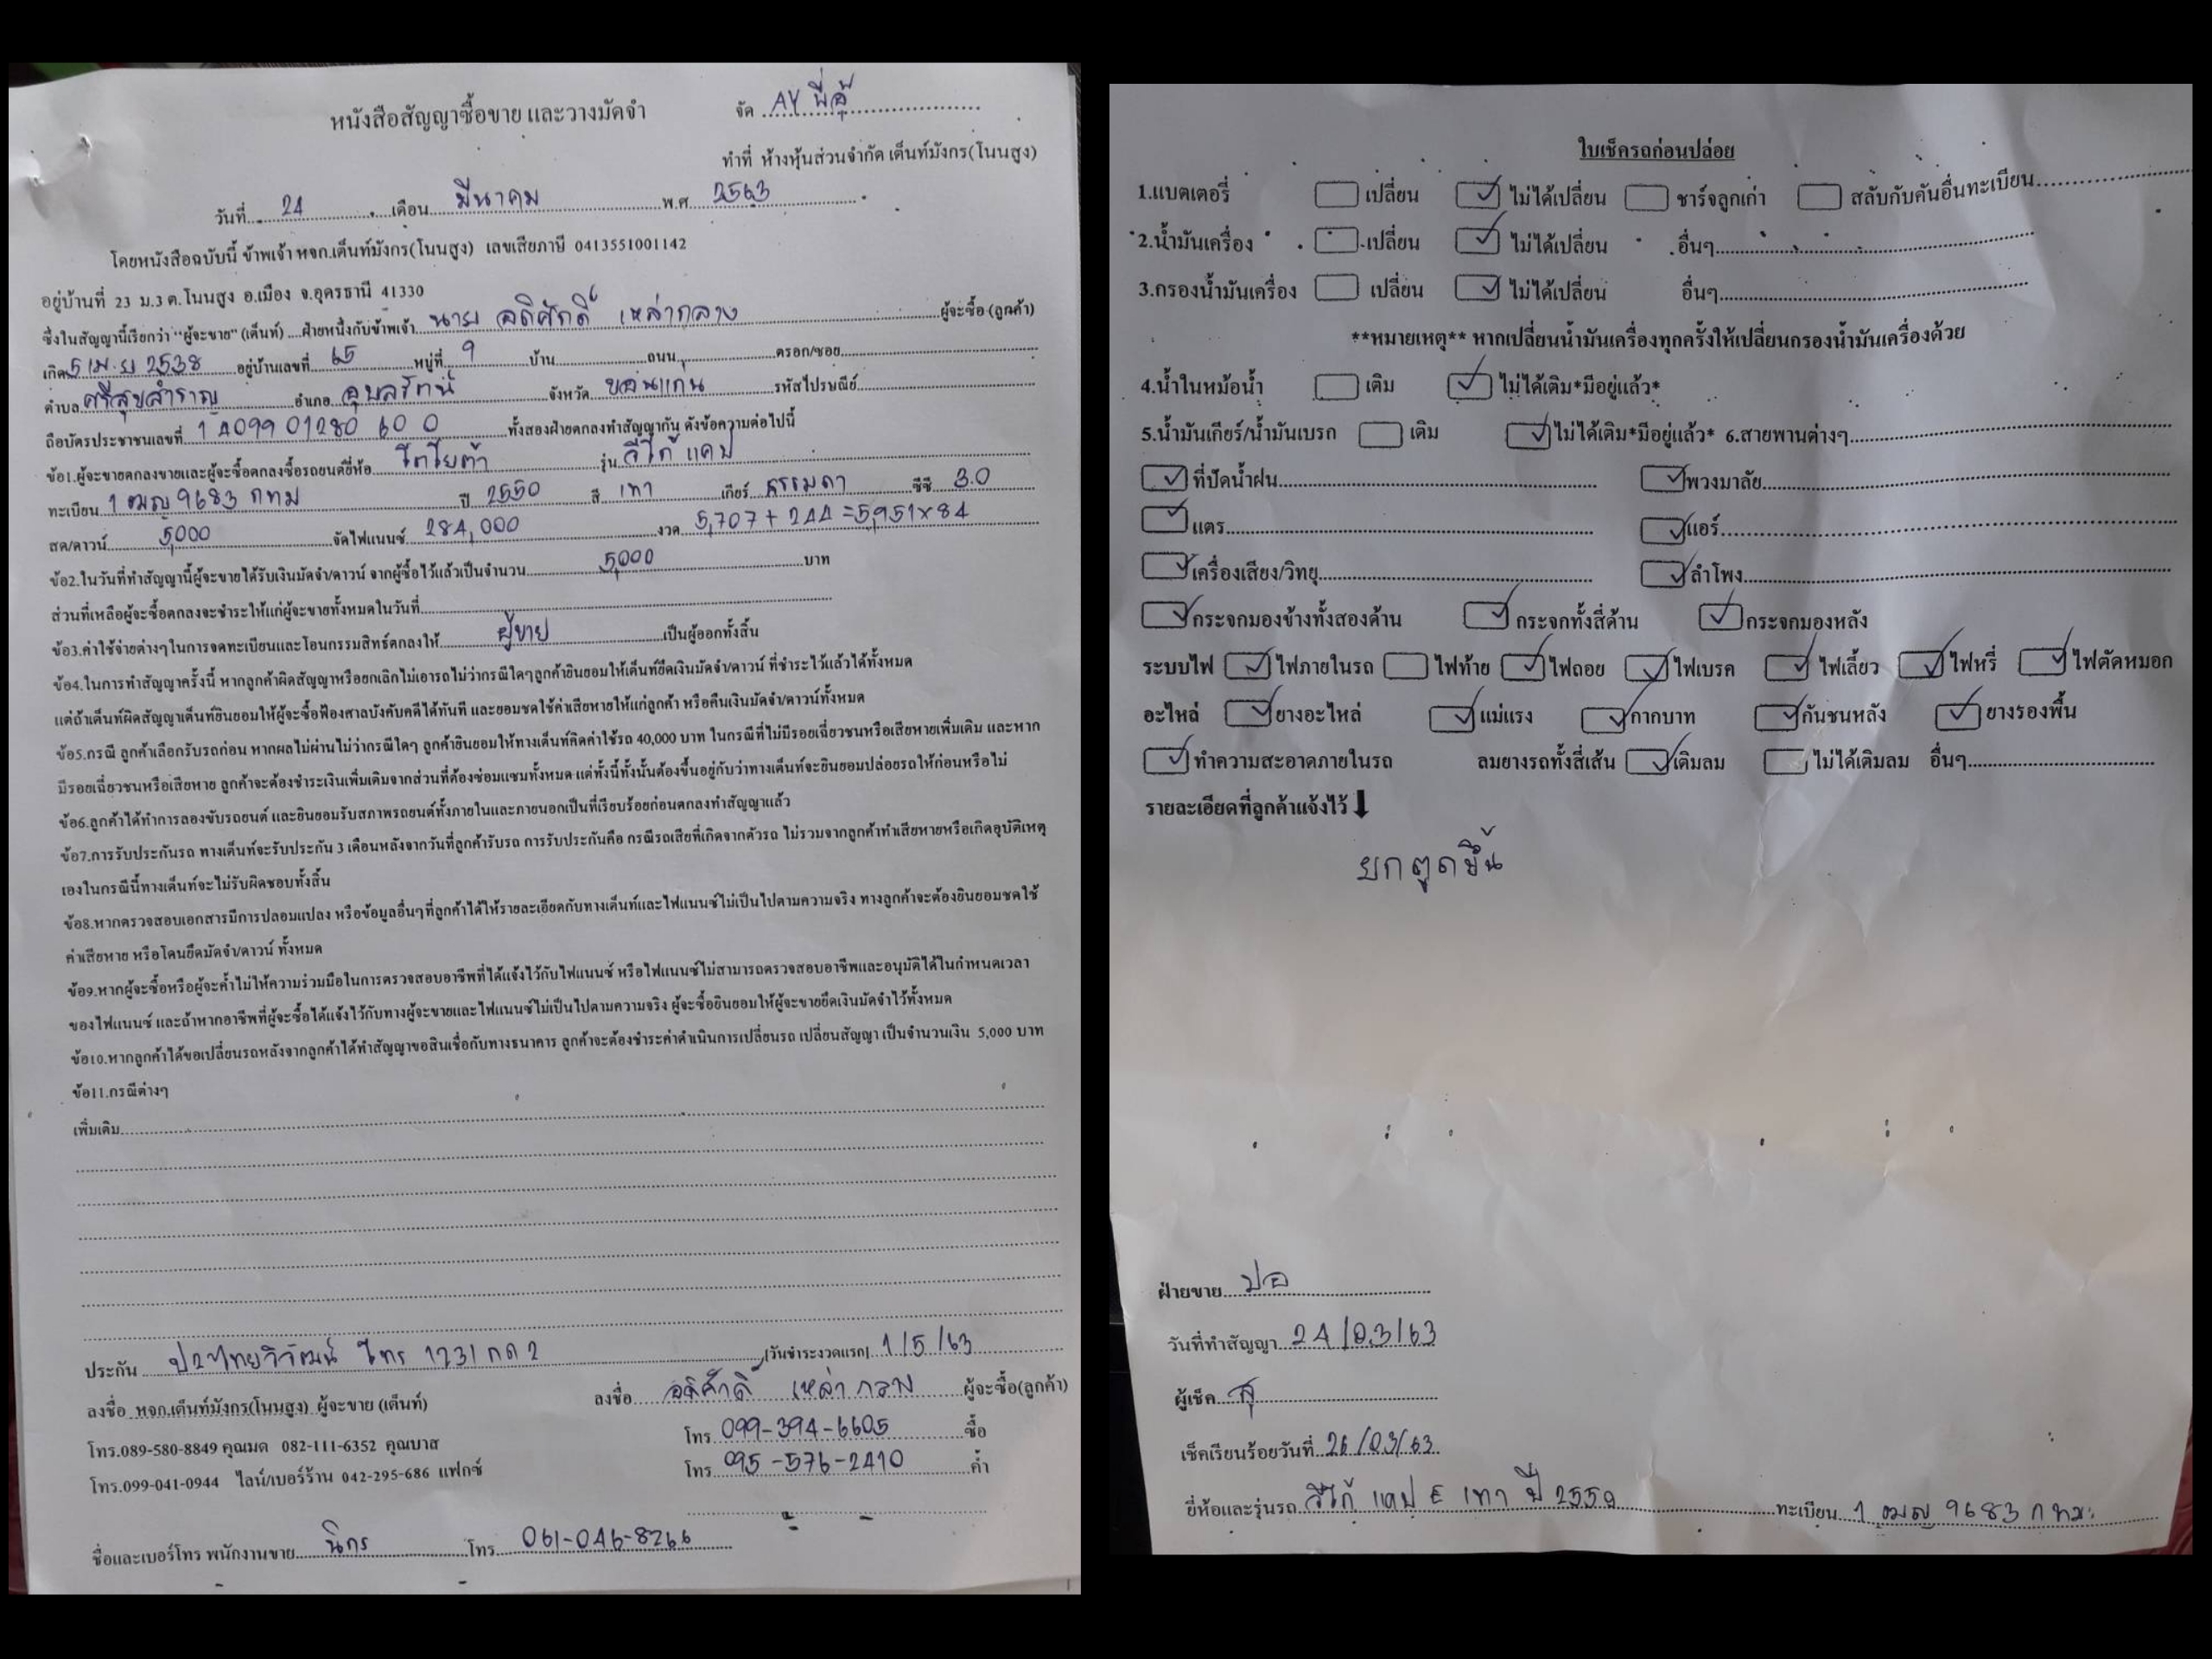 หนังสือสัญญาซื้อขาย และวางมัดจำ
จัด AY พี่อู๋
ทำที่ ห้างหุ้นส่วนจำกัด เต็นท์มังกร(โนนสูง)
วันที่ 24 เดือน มีนาคม พ.ศ 2563
โดยหนังสือฉบับนี้ ข้าพเจ้า หจก.เต็นท์มังกร(โนนสูง) เลขเสียภาษี 0413551001142
อยู่บ้านที่ 23 ม.3 ต.โนนสูง อ.เมือง จ.อุดรธานี 41330
ซึ่งในสัญญานี้เรียกว่า "ผู้จะขาย" (เต็นท์) ....ฝ่ายหนึ่งกับข้าพเจ้า นาย อดิศักดิ์ เหล่ากลาง ผู้จะซื้อ (ลูกค้า)
เกิด 5 เม.ย 2538 อยู่บ้านเลขที่ 65 หมู่ที่ 9 บ้าน ถนน ตรอก/ซอย
ตำบล ศรีสุขสำราญ อำเภอ อุบลรัตน์ จังหวัด ขอนแก่น รหัสไปรษณีย์
ถือบัตรประชาชนเลขที่ 1 4099 01280 60 0 ทั้งสองฝ่ายตกลงทำสัญญากัน ดังข้อความต่อไปนี้
ข้อ1.ผู้จะขายตกลงขายและผู้จะซื้อตกลงซื้อรถยนต์ยี่ห้อ โตโยต้า รุ่น วีโก้ แคป
ทะเบียน 1 ฒญ 9683 กทม ปี 2550 สี เทา เกียร์ ธรรมดา ซีซี 3.0
สด/ดาวน์ 5,000 จัดไฟแนนซ์ 284,000 งวด 5,707 + 244 = 5,951 x 84
ข้อ2.ในวันที่ทำสัญญานี้ผู้จะขายได้รับเงินมัดจำ/ดาวน์ จากผู้ซื้อไว้แล้วเป็นจำนวน 5,000 บาท
ส่วนที่เหลือผู้จะซื้อตกลงจะชำระให้แก่ผู้จะขายทั้งหมดในวันที่
ข้อ3.ค่าใช้จ่ายต่างๆในการจดทะเบียนและโอนกรรมสิทธ์ตกลงให้ ผู้ขาย เป็นผู้ออกทั้งสิ้น
ข้อ4.ในการทำสัญญาครั้งนี้ หากลูกค้าผิดสัญญาหรือยกเลิกไม่เอารถไม่ว่ากรณีใดๆลูกค้ายินยอมให้เต็นท์ยึดเงินมัดจำ/ดาวน์ ที่ชำระไว้แล้วได้ทั้งหมด
แต่ถ้าเต็นท์ผิดสัญญาเต็นท์ยินยอมให้ผู้จะซื้อฟ้องศาลบังคับคดีได้ทันที และยอมชดใช้ค่าเสียหายให้แก่ลูกค้า หรือคืนเงินมัดจำ/ดาวน์ทั้งหมด
ข้อ5.กรณี ลูกค้าเลือกรับรถก่อน หากผลไม่ผ่านไม่ว่ากรณีใดๆ ลูกค้ายินยอมให้ทางเต็นท์คิดค่าใช้รถ 40,000 บาท ในกรณีที่ไม่มีรอยเฉี่ยวชนหรือเสียหายเพิ่มเติม และหาก
มีรอยเฉี่ยวชนหรือเสียหาย ลูกค้าจะต้องชำระเงินเพิ่มเติมจากส่วนที่ต้องซ่อมแซมทั้งหมด แต่ทั้งนี้ทั้งนั้นต้องขึ้นอยู่กับว่าทางเต็นท์จะยินยอมปล่อยรถให้ก่อนหรือไม่
ข้อ6.ลูกค้าได้ทำการลองขับรถยนต์ และยินยอมรับสภาพรถยนต์ทั้งภายในและภายนอกเป็นที่เรียบร้อยก่อนตกลงทำสัญญาแล้ว
ข้อ7.การรับประกันรถ ทางเต็นท์จะรับประกัน 3 เดือนหลังจากวันที่ลูกค้ารับรถ การรับประกันคือ กรณีรถเสียที่เกิดจากตัวรถ ไม่รวมจากลูกค้าทำเสียหายหรือเกิดอุบัติเหตุ
เองในกรณีนี้ทางเต็นท์จะไม่รับผิดชอบทั้งสิ้น
ข้อ8.หากตรวจสอบเอกสารมีการปลอมแปลง หรือข้อมูลอื่นๆที่ลูกค้าได้ให้รายละเอียดกับทางเต็นท์และไฟแนนซ์ไม่เป็นไปตามความจริง ทางลูกค้าจะต้องยินยอมชดใช้
ค่าเสียหาย หรือโดนยึดมัดจำ/ดาวน์ ทั้งหมด
ข้อ9.หากผู้จะซื้อหรือผู้จะค้ำไม่ให้ความร่วมมือในการตรวจสอบอาชีพที่ได้แจ้งไว้กับไฟแนนซ์ หรือไฟแนนซ์ไม่สามารถตรวจสอบอาชีพและอนุมัติได้ในกำหนดเวลา
ของไฟแนนซ์ และถ้าหากอาชีพที่ผู้จะซื้อได้แจ้งไว้กับทางผู้จะขายและไฟแนนซ์ไม่เป็นไปตามความจริง ผู้จะซื้อยินยอมให้ผู้จะขายยึดเงินมัดจำไว้ทั้งหมด
ข้อ10.หากลูกค้าได้ขอเปลี่ยนรถหลังจากลูกค้าได้ทำสัญญาขอสินเชื่อกับทางธนาคาร ลูกค้าจะต้องชำระค่าดำเนินการเปลี่ยนรถ เปลี่ยนสัญญา เป็นจำนวนเงิน 5,000 บาท
ข้อ11.กรณีต่างๆ
เพิ่มเติม
ประกัน ปอ.ไทยวิวัฒน์ โทร 1231 กด 2 (วันชำระงวดแรก) 1/5/63
ลงชื่อ หจก.เต็นท์มังกร(โนนสูง) ผู้จะขาย (เต็นท์) ลงชื่อ อดิศักดิ์ เหล่ากลาง ผู้จะซื้อ(ลูกค้า)
โทร.089-580-8849 คุณมด 082-111-6352 คุณบาส โทร 099-394-6605 ซื้อ
โทร.099-041-0944 ไลน์/เบอร์ร้าน 042-295-686 แฟกซ์ โทร 095-576-2410 ค้ำ
ชื่อและเบอร์โทร พนักงานขาย นิกร โทร 061-046-8266
ใบเช็ครถก่อนปล่อย
1.แบตเตอรี่ เปลี่ยน ไม่ได้เปลี่ยน ชาร์จลูกเก่า สลับกับคันอื่นทะเบียน
2.น้ำมันเครื่อง เปลี่ยน ไม่ได้เปลี่ยน อื่นๆ
3.กรองน้ำมันเครื่อง เปลี่ยน ไม่ได้เปลี่ยน อื่นๆ
**หมายเหตุ** หากเปลี่ยนน้ำมันเครื่องทุกครั้งให้เปลี่ยนกรองน้ำมันเครื่องด้วย
4.น้ำในหม้อน้ำ เติม ไม่ได้เติม*มีอยู่แล้ว*
5.น้ำมันเกียร์/น้ำมันเบรก เติม ไม่ได้เติม*มีอยู่แล้ว* 6.สายพานต่างๆ
ที่ปัดน้ำฝน พวงมาลัย
แตร แอร์
เครื่องเสียง/วิทยุ ลำโพง
กระจกมองข้างทั้งสองด้าน กระจกทั้งสี่ด้าน กระจกมองหลัง
ระบบไฟ ไฟภายในรถ ไฟท้าย ไฟถอย ไฟเบรค ไฟเลี้ยว ไฟหรี่ ไฟตัดหมอก
อะไหล่ ยางอะไหล่ แม่แรง กากบาท กันชนหลัง ยางรองพื้น
ทำความสะอาดภายในรถ ลมยางรถทั้งสี่เส้น เติมลม ไม่ได้เติมลม อื่นๆ
รายละเอียดที่ลูกค้าแจ้งไว้
ยกตูดขึ้น
ฝ่ายขาย ปอ
วันที่ทำสัญญา 24/03/63
ผู้เช็ค
เช็คเรียนร้อยวันที่ 26/03/63
ยี่ห้อและรุ่นรถ วีโก้ แคป E เทา ปี 2550 ทะเบียน 1 ฒญ 9683 กทม.